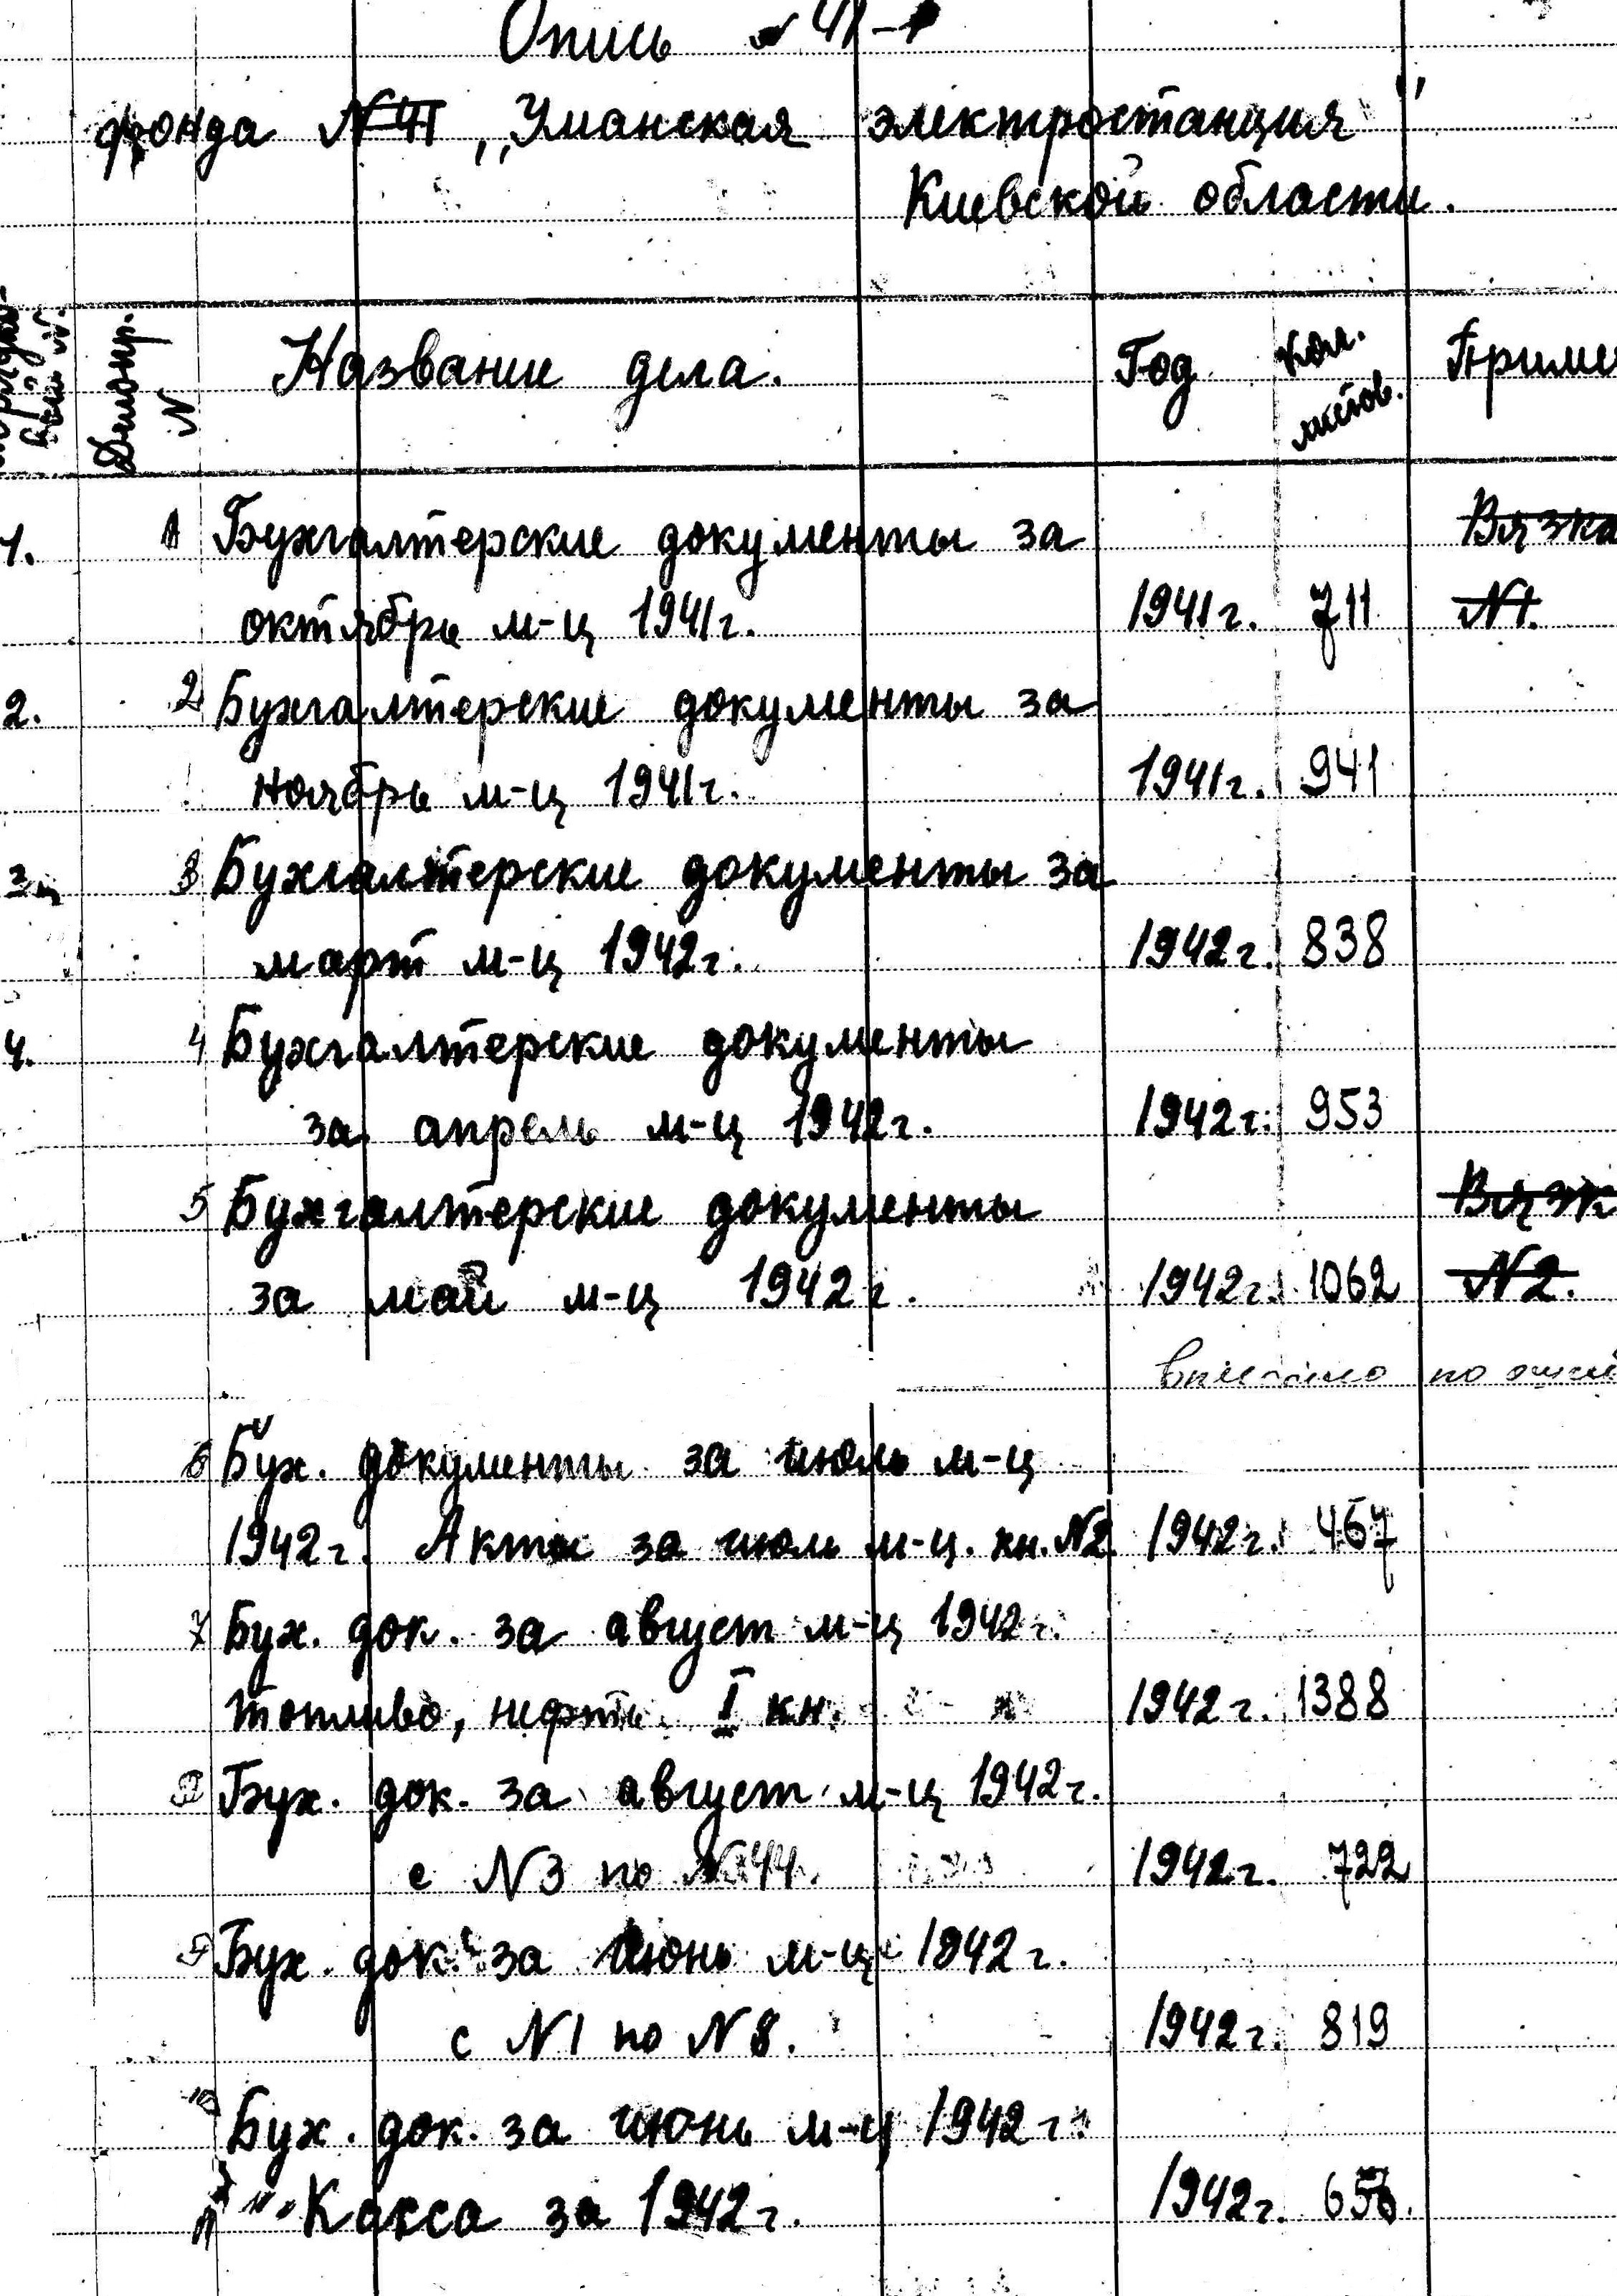 Опись № 41-1
фонда №41 „Уманская электростанция"
Киевской области.
Делопр. №
Название дела.
Год
Кол. листов.
Приме
1. 1 Бухгалтерские документы за
Вязка
октябрь м-ц 1941г. 1941г. 711 №1.
2. 2 Бухгалтерские документы за
ноябрь м-ц 1941г. 1941г. 941
3. 3 Бухгалтерские документы за
март м-ц 1942г. 1942г. 838
4. 4 Бухгалтерские документы
за апрель м-ц 1942г. 1942г. 953
5 Бухгалтерские документы Вязк
за май м-ц 1942г. 1942г. 1062 №2.
по
6 Бух. документы за июль м-ц
1942г. Акты за июль м-ц. кн. №2 1942г. 467
7 Бух. док. за август м-ц 1942г.
топливо, нефть. I кн. 1942г. 1388
Бух. док. за август м-ц 1942г.
с №3 по №44. 1942г. 722
9 Бух. док. за июнь м-ц 1942г.
с №1 по №8. 1942г. 819
10 Бух. док. за июнь м-ц 1942г.
Касса за 1942г. 1942г. 656.